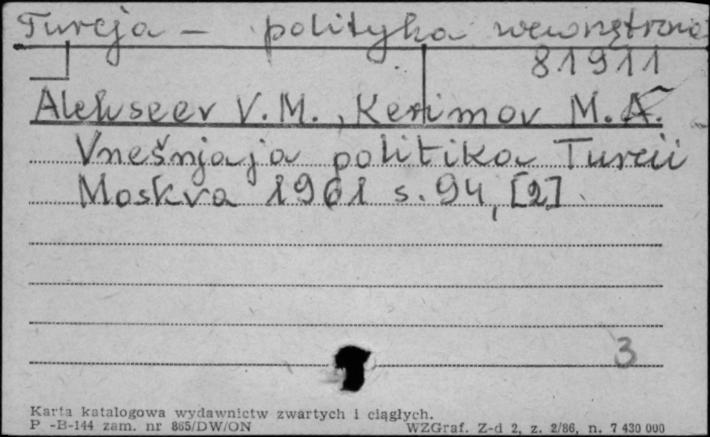 Turcja - polityka wewnętrzna
81911
Alekseev V.M., Kerimov M.A.
Vnešnjaja politika Turcii
Moskva 1961 s. 94, [2]
3
Karta katalogowa wydawnictw zwartych i ciągłych.
P -B-144 zam. nr 865/DW/ON WZGraf. Z-d 2, z. 2/86, n. 7 430 000